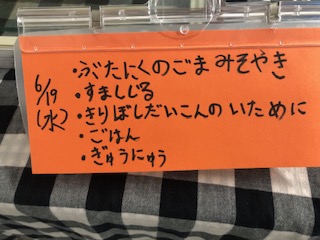 6/19
(水)
・ぶたにくのごまみそやき
・すましじる
・きりぼしだいこんのいために
・ごはん
・ぎゅうにゅう